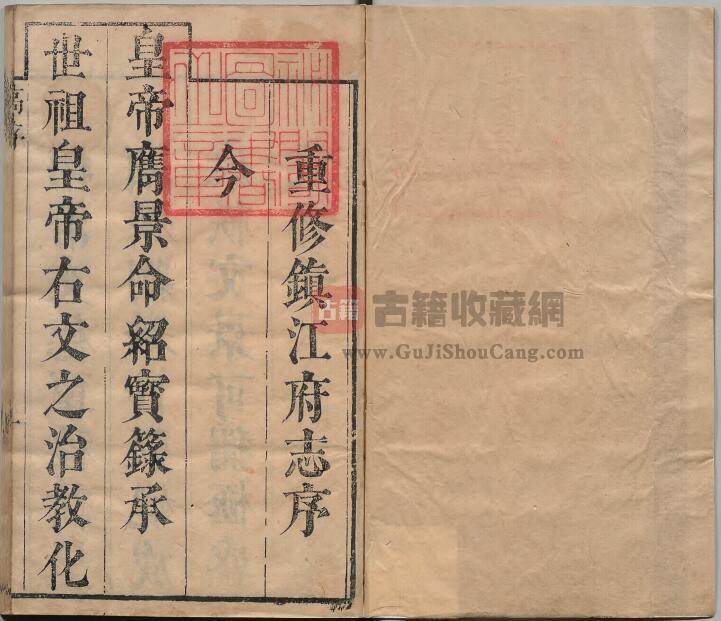 重修鎮江府志序
今
皇帝膺景命紹寶籙承
世祖皇帝右文之治教化
古籍
古籍收藏網
www.GuJiShouCang.com